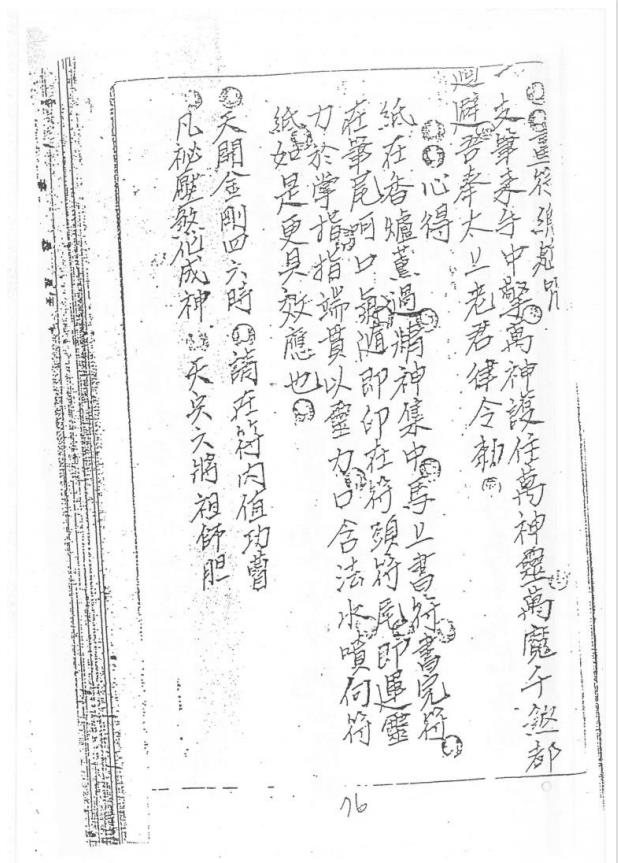 畫符總筆咒
一支筆來手中擎萬神護任萬神靈萬魔千煞都
迴避吾奉太上老君律令勅
心得
紙在香爐薰過精神集中馬上書符書完符
在筆尾呵口氣隨即印在符頭符尾即運靈
力於掌指指端貫以靈力口含法水噴向符
紙如是更具效應也
天開金剛四六時 請在符內值功曹
凡祕壓煞化成神 天兵六將祖師胆
76